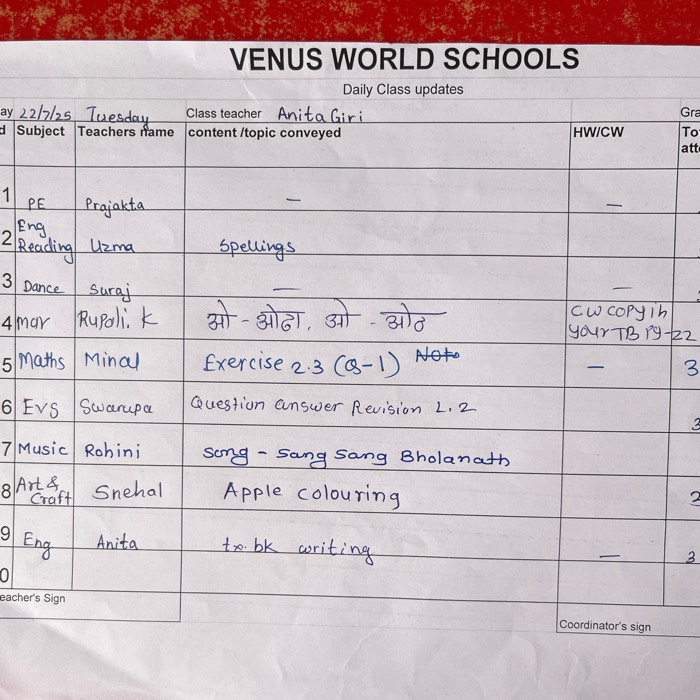 VENUS WORLD SCHOOLS
Daily Class updates
ay 22/7/25 Tuesday Class teacher Anita Giri Gra
d Subject Teachers name content /topic conveyed HW/CW To
att
1 PE Prajakta — —
2 Eng Reading Uzma Spellings
3 Dance Suraj — —
4 mar Rupali. K ओ - ओढा, ओ - ओठ CW COPY ih
your TB pg-22
5 Maths Minal Exercise 2.3 (Q-1) — 3
6 EVS Swarupa Question answer Revision L.2 3
7 Music Rohini song - Sang Sang Bholanath
8 Art & Craft Snehal Apple colouring 2
9 Eng Anita tx. bk writing — 3
0
eacher's Sign
Coordinator's sign